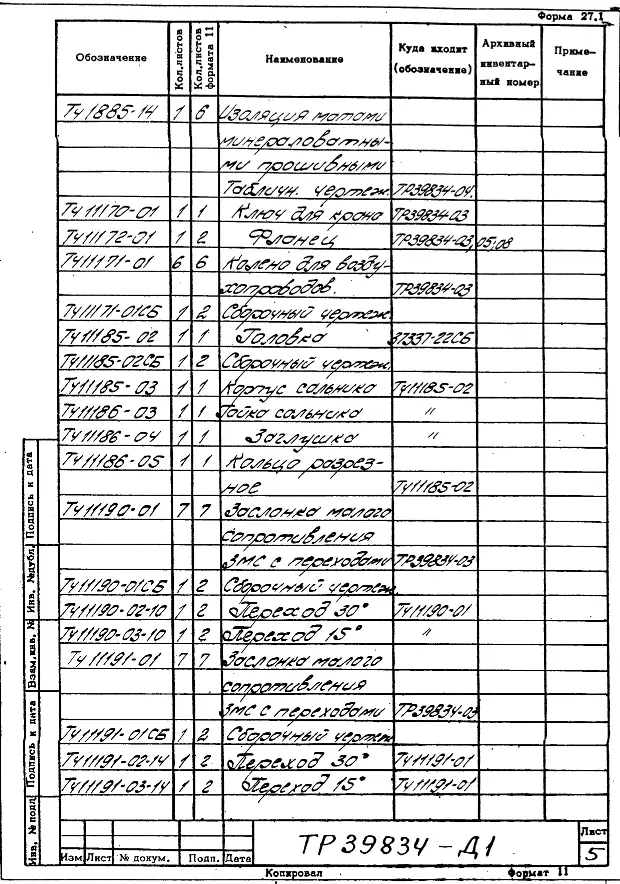 Форма 27.1
Обозначение Кол.листов Кол.листов формата 11 Наименование Куда входит (обозначение) Архивный инвентарный номер Примечание
ТЧ1885-14 1 6 Изоляция матами
минераловатны-
ми прошивными
Табличн. чертеж. ТР39834-04.
ТЧ11170-01 1 1 Ключ для крана ТР39834-03
ТЧ11172-01 1 2 Фланец ТР39834-03, 05;08
ТЧ11171-01 6 6 Колено для возду-
хопроводов. ТР39834-03
ТЧ11171-01СБ 1 2 Сборочный чертеж
ТЧ11185-02 1 1 Головка 37337-22СБ
ТЧ11185-02СБ 1 2 Сборочный чертеж.
ТЧ11185-03 1 1 Корпус сальника ТЧ11185-02
ТЧ11186-03 1 1 Гайка сальника "
ТЧ11186-04 1 1 Заглушка "
ТЧ11186-05 1 1 Кольцо разрез-
ное ТЧ11185-02
ТЧ11190-01 7 7 Заслонка малого
сопротивления
ЗМС с переходами ТР39834-03
ТЧ11190-01СБ 1 2 Сборочный чертеж.
ТЧ11190-02-10 1 2 Переход 30° ТЧ11190-01
ТЧ11190-03-10 1 2 Переход 15° "
ТЧ11191-01 7 7 Заслонка малого
сопротивления
ЗМС с переходами ТР39834-03
ТЧ11191-01СБ 1 2 Сборочный чертеж
ТЧ11191-02-14 1 2 Переход 30° ТЧ11191-01
ТЧ11191-03-14 1 2 Переход 15° ТЧ11191-01
Подпись и дата
Инв. №дубл.
Взам.инв. №
Подпись и дата
Инв. №подл
Изм Лист № докум. Подп. Дата
ТР39834-Д1
Лист
5
Копировал Формат 11